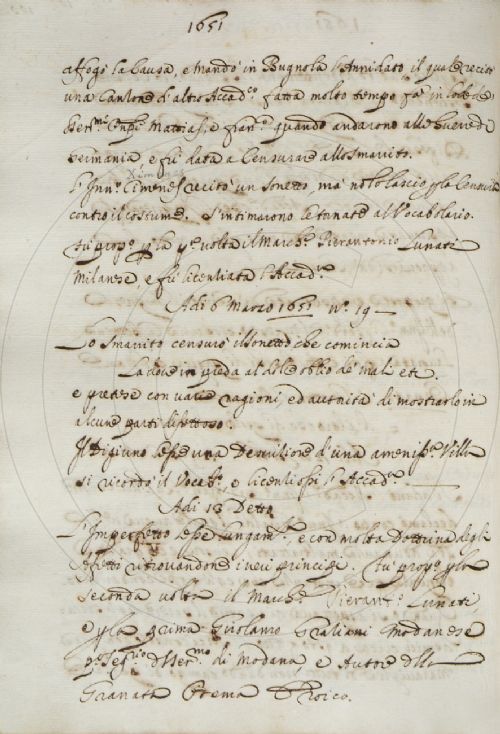 1651
affogò la Causa, e mandò in Bugnola l'Annidato il quale recitò
una Canzone d'altro Accad.co fatta molto tempo fà in lode de
Ser.mi Mattias, e Fran.co quando andarono alle Guerre di
Germania, e fù data a Censurare allo Smarito.
Ximenes
L'Inn.o Cimenes recitò un Sonetto, mà no lo lasciò p la Censura
contro il costume. S'intimarono le tornate al Vocabolario.
fù prop.o p la p.a volta il March.e Pierantonio Lunati
Milanese, e fù licenziata l'Accad.a
Adi 6 Marzo 1651 n.o 19
Lo Smarito censurò il Sonetto che comincia
La dove in preda al dolce oblio de mali etc.
e pretese con varie ragioni, ed autorità di mostrarlo in
alcune parti difettoso.
Il Digiuno lesse una Descrizione d'una ameniss.a Villa
si ricordò il Vocab.o, e licenziossi l'Accad.a
Adi 13 Detto
L'Imperfetto lesse lungam.te, e con molta Dottrina degli
Affetti ritrovandone i veri principi. Fù prop.o p la
seconda volta il March.e Pierant.o Lunati
e p la prima Girolamo Graziani Modanese
p.o Seg.rio d Ser.mo di Modana, e Autore dlla
Granata Poema Eroico.